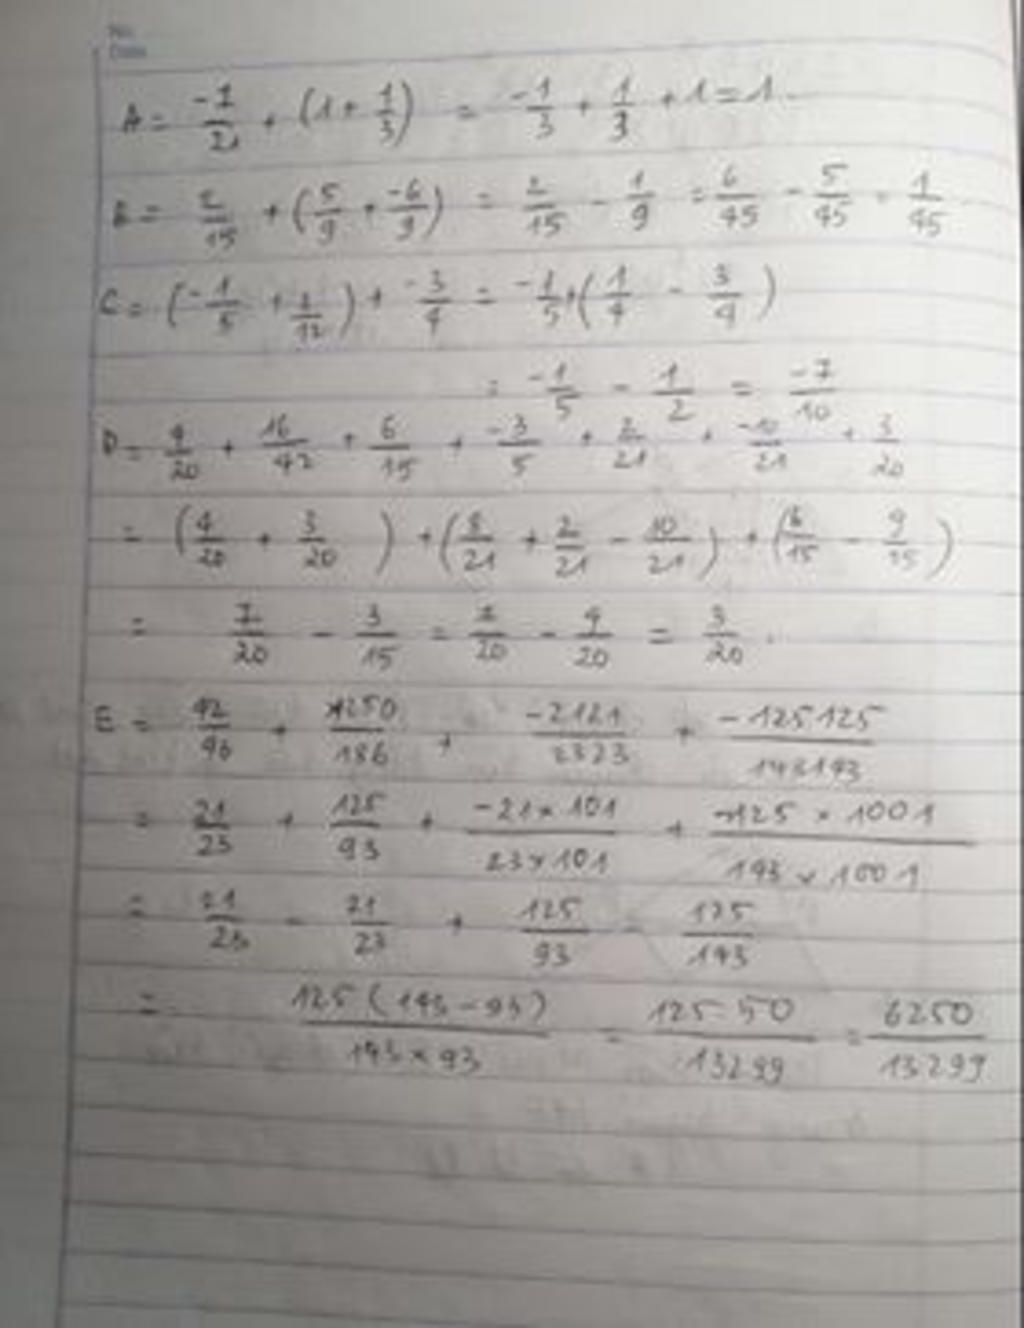 No.
Date
A = -7/21 + (1 + 1/3) = -1/3 + 1/3 + 1 = 1.
B = 2/15 + (5/9 + -6/9) = 2/15 - 1/9 = 6/45 - 5/45 = 1/45
C = (-1/5 + 3/12) + -3/4 = -1/5 + (1/4 - 3/4)
= -1/5 - 1/2 = -7/10
D = 4/20 + 16/42 + 6/15 + -3/5 + 2/21 + -10/21 + 3/20
= (4/20 + 3/20) + (8/21 + 2/21 - 10/21) + (6/15 - 9/15)
= 7/20 - 3/15 = 7/20 - 4/20 = 3/20.
E = 42/46 + 250/186 + -2121/2323 + -125125/143143
= 21/23 + 125/93 + -21×101/23×101 + -125×1001/143×1001
= 21/23 - 21/23 + 125/93 - 125/143
= 125(143-93)/143×93 = 125.50/13299 = 6250/13299